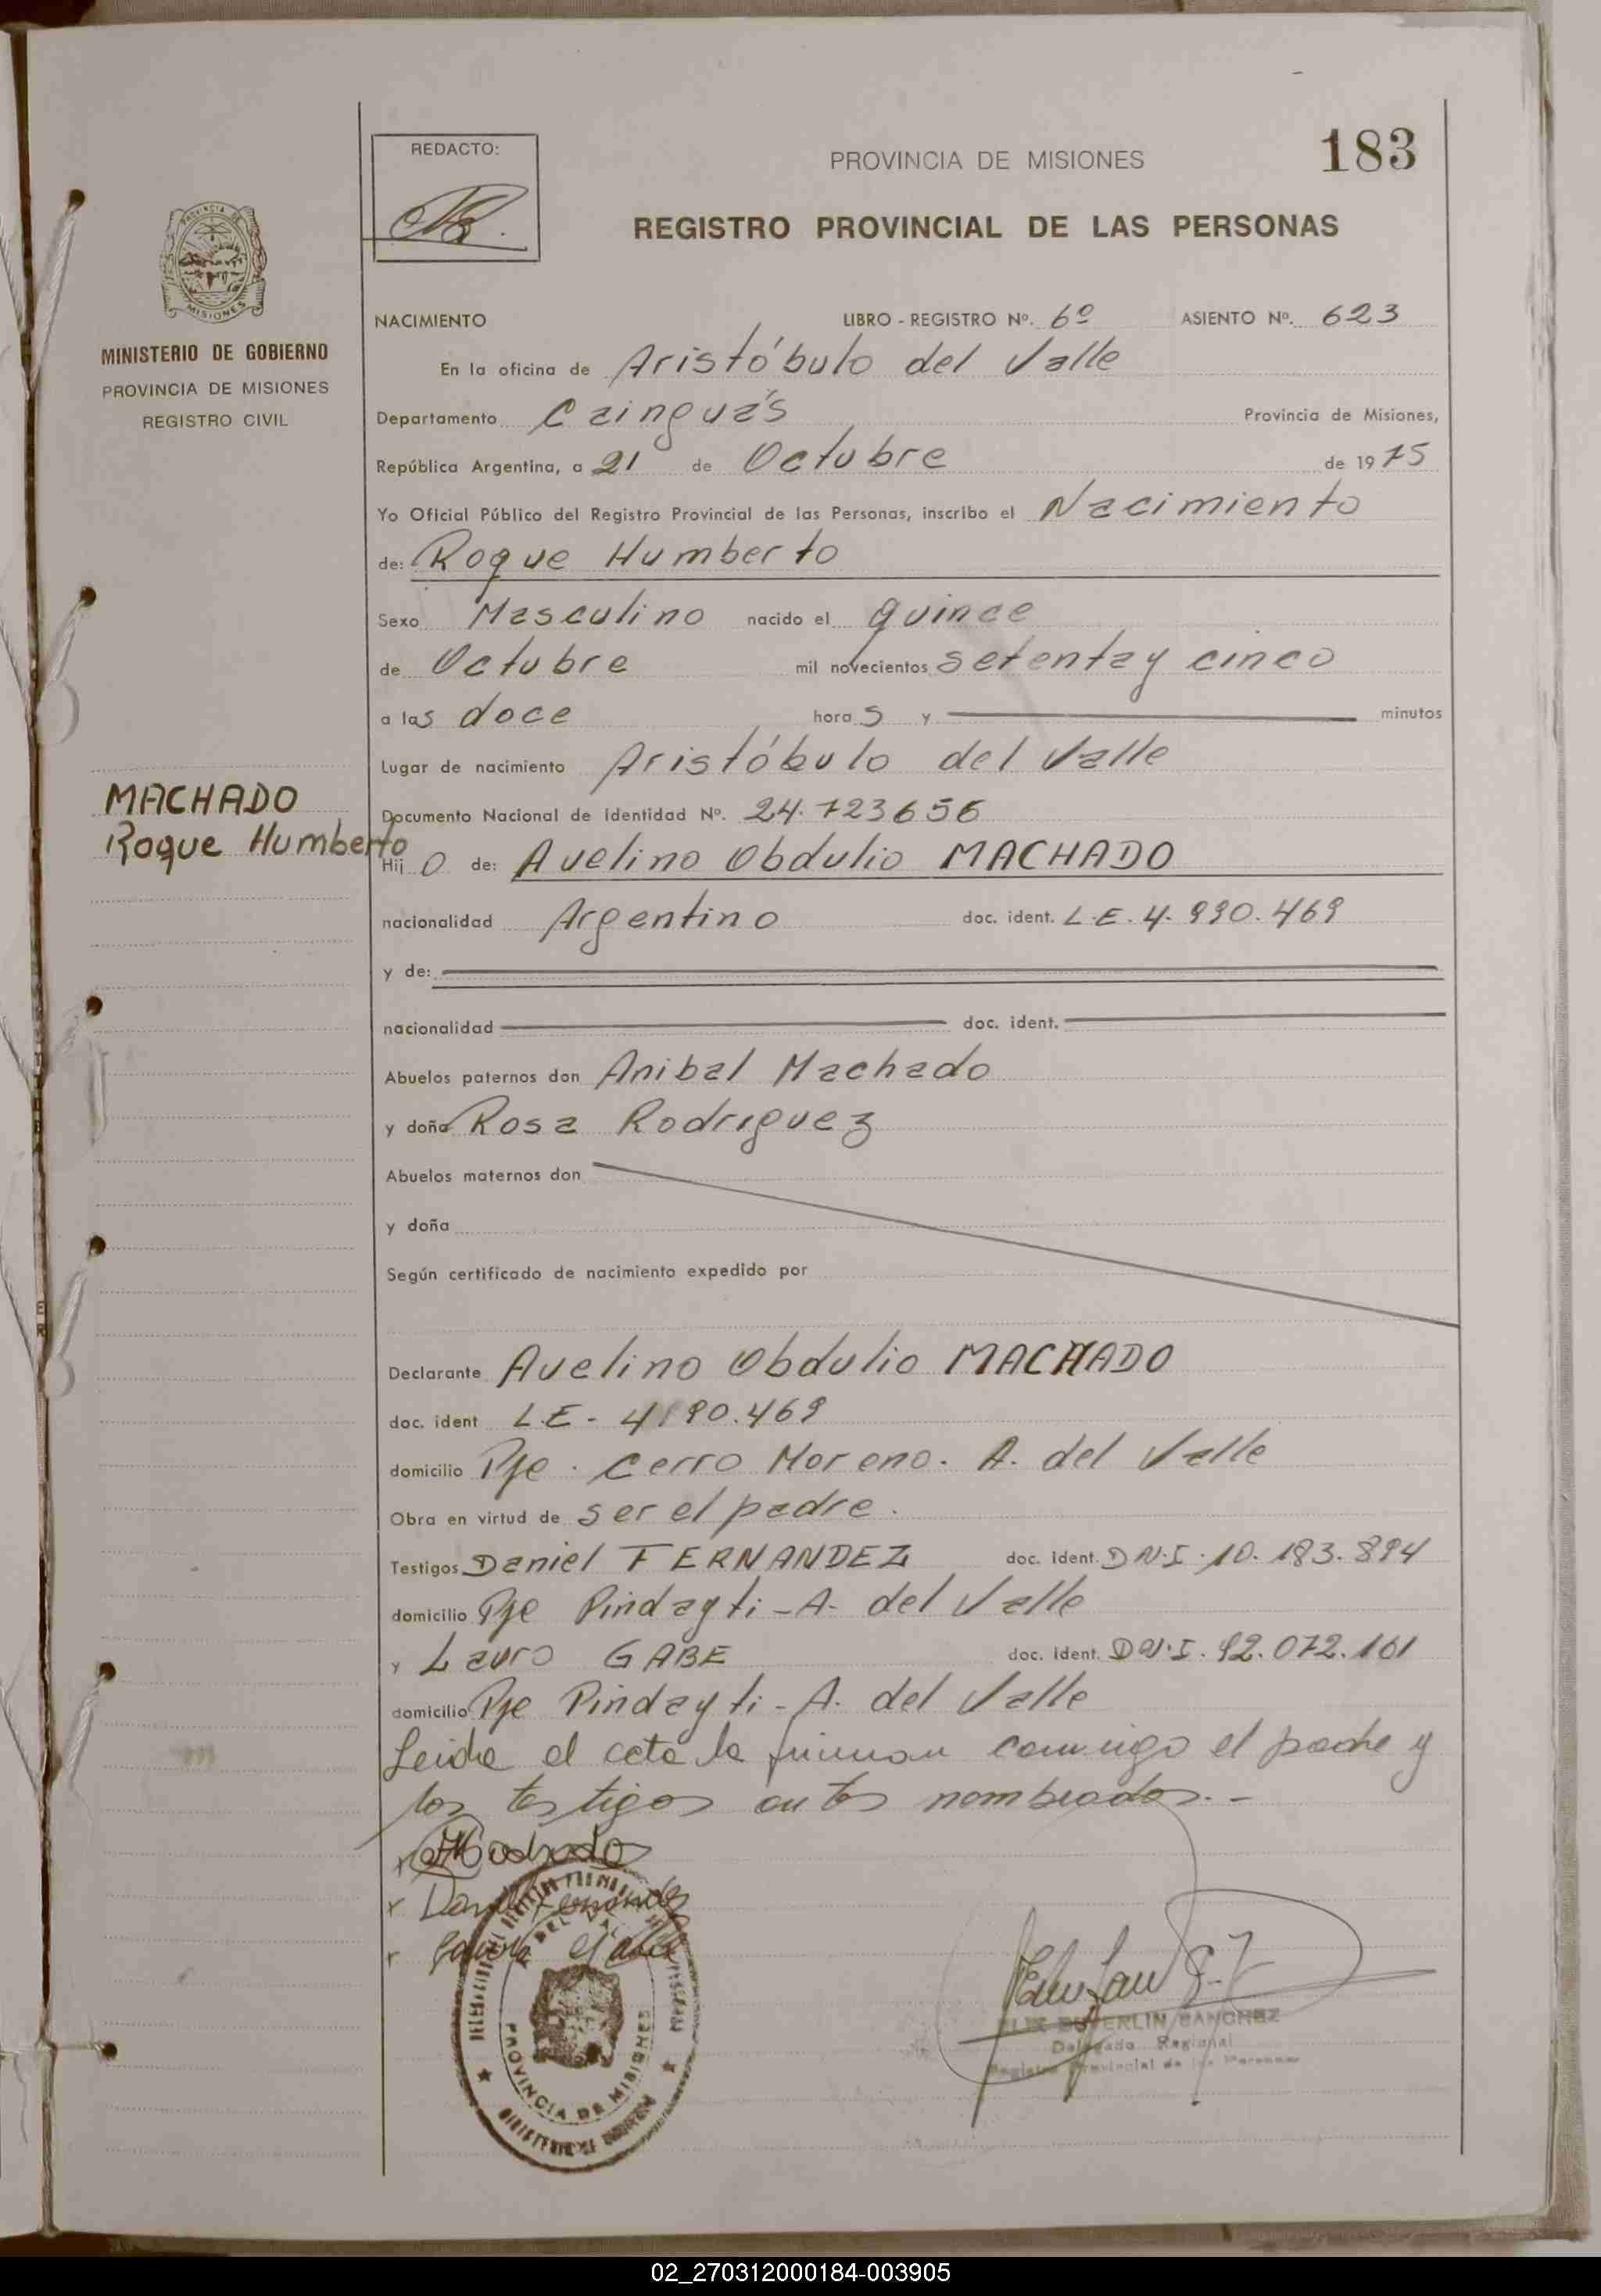 183
REDACTO:
PROVINCIA DE MISIONES
REGISTRO PROVINCIAL DE LAS PERSONAS
PROVINCIA DE
MISIONES
MINISTERIO DE GOBIERNO
PROVINCIA DE MISIONES
REGISTRO CIVIL
NACIMIENTO LIBRO - REGISTRO Nº. 6º ASIENTO Nº. 623
En la oficina de Aristóbulo del Valle
Departamento Cainguás Provincia de Misiones,
República Argentina, a 21 de Octubre de 1975
Yo Oficial Público del Registro Provincial de las Personas, inscribo el Nacimiento
de: Roque Humberto
Sexo Masculino nacido el quince
de Octubre mil novecientos setenta y cinco
a las doce horas y minutos
Lugar de nacimiento Aristóbulo del Valle
MACHADO
Roque Humberto
Documento Nacional de Identidad Nº. 24.723656
Hijo de: Avelino Obdulio MACHADO
nacionalidad Argentino doc. ident. L.E. 4.990.469
y de:
nacionalidad doc. ident.
Abuelos paternos don Anibal Machado
y doña Rosa Rodriguez
Abuelos maternos don
y doña
Según certificado de nacimiento expedido por
Declarante Avelino Obdulio MACHADO
doc. ident L.E.
domicilio Pje. Cerro Moreno. A. del Valle
Obra en virtud de ser el padre.
Testigos Daniel FERNANDEZ doc. ident. D.N.I. 10.183.894
domicilio Pje Pindayti - A. del Valle
y Lauro GABE doc. ident. D.N.I. 92.072.101
domicilio Pje Pindayti - A. del Valle
Leida el acta la firman conmigo el padre y
los testigos antes nombrados.-
Machado
Daniel Fernandez
PROVINCIA DE MISIONES
SANCHEZ
Delegado Regional
Registro Provincial de las Personas
02_270312000184-003905